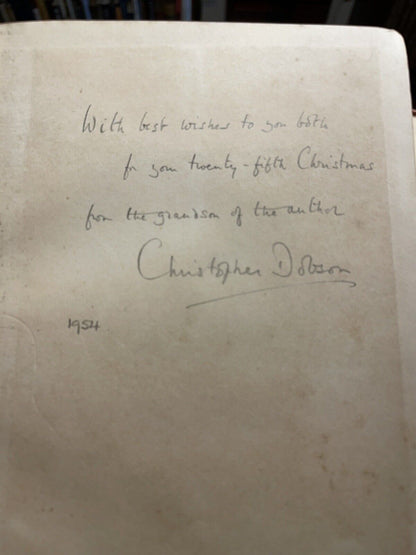 With best wishes to you both
for your twenty-fifth Christmas
from the grandson of the author
Christopher Dobson
1954